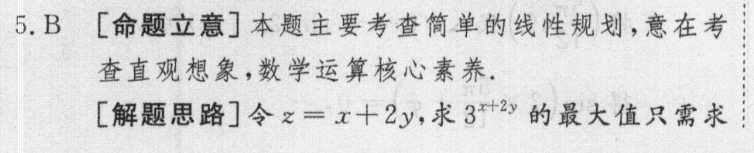 5. B [命题立意]本题主要考查简单的线性规划,意在考
查直观想象,数学运算核心素养.
[解题思路]令 z = x + 2y,求 3^{x+2y} 的最大值只需求